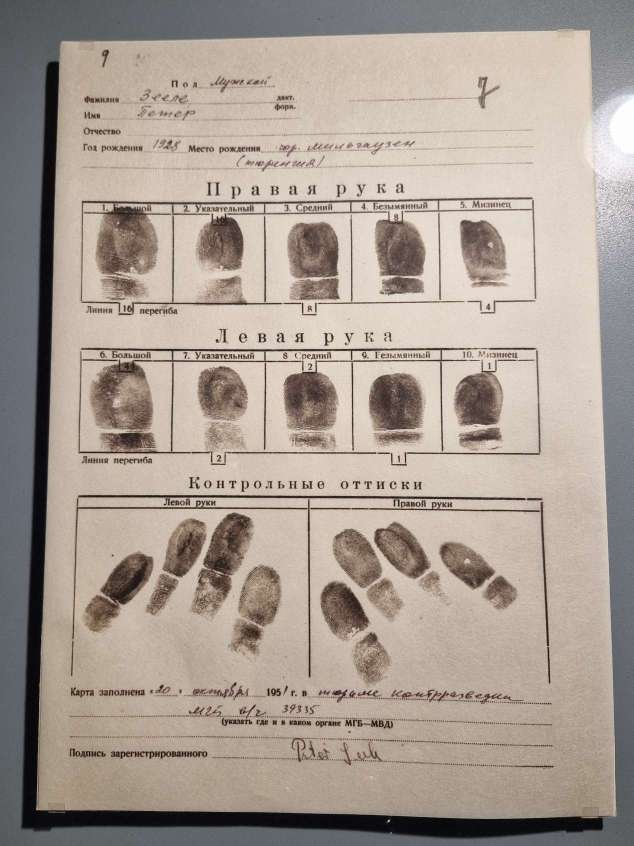 9
7
Пол Мужской
Фамилия Зееле дакт. форм.
Имя Петер
Отчество
Год рождения 1928 Место рождения гор. Мильгаузен
(тюрингия)
Правая рука
1. Большой 2. Указательный 3. Средний 4. Безымянный 5. Мизинец
10 8
Линия 16 перегиба 8 4
Левая рука
6. Большой 7. Указательный 8 Средний 9. Безымянный 10. Мизинец
4 2 1
Линия перегиба 2 1
Контрольные оттиски
Левой руки Правой руки
Карта заполнена "20" октября 1951 г. в тюрьме контрразведки
МГБ в/ч 39335
(указать где и в каком органе МГБ—МВД)
Подпись зарегистрированного Peter